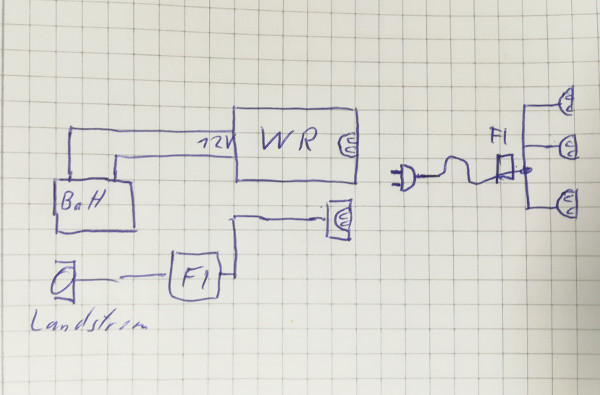 12V
WR
Batt
FI
FI
Landstrom